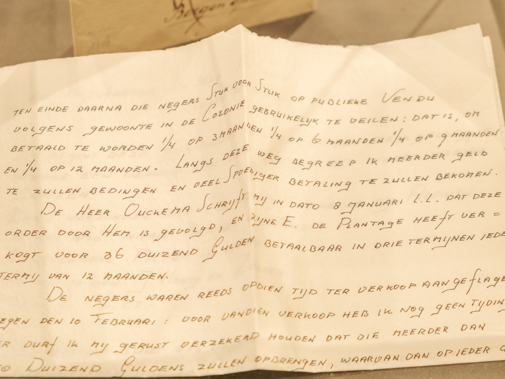 Bergen
TEN EINDE DAARNA DIE NEGERS STUK VOOR STUK OP PUBLIEKE VENDU
VOLGENS GEWOONTE IN DE COLONIE GEBRUIKELYK TE VEILEN: DAT IS, OM
BETAALD TE WORDEN 1/4 OP 3 MAANDEN 1/4 OP 6 MAANDEN 1/4 OP 9 MAANDEN
EN 1/4 OP 12 MAANDEN. LANGS DEZE WEG BEGREEP IK MEERDER GELD
TE ZULLEN BEDINGEN EN DEEL SPOEDIGER BETALING TE ZULLEN BEKOMEN.
DE HEER OUCKEMA SCHRYFT MY IN DATO 8 JANUARI L.L. DAT DEZE
ORDER DOOR HEM IS GEVOLGD, EN ZYNE E. DE PLANTAGE HEEFT VER =
KOGT VOOR 36 DUIZEND GULDEN BETAALBAAR IN DRIE TERMYNEN IEDE
TERMYN VAN 12 MAANDEN.
DE NEGERS WAREN REEDS OP DIEN TYD TER VERKOOP AANGEFLAGE
EGEN DEN 10 FEBRUARI: VOOR VAN DIEN VERKOOP HEB IK NOG GEEN TYDIN
ER DURF IK MY GERUST VERZEKERD HOUDEN DAT DIE MEERDER DAN
DUIZEND GULDENS ZULLEN OPBRENGEN, WAARVAN DAN OP IEDER